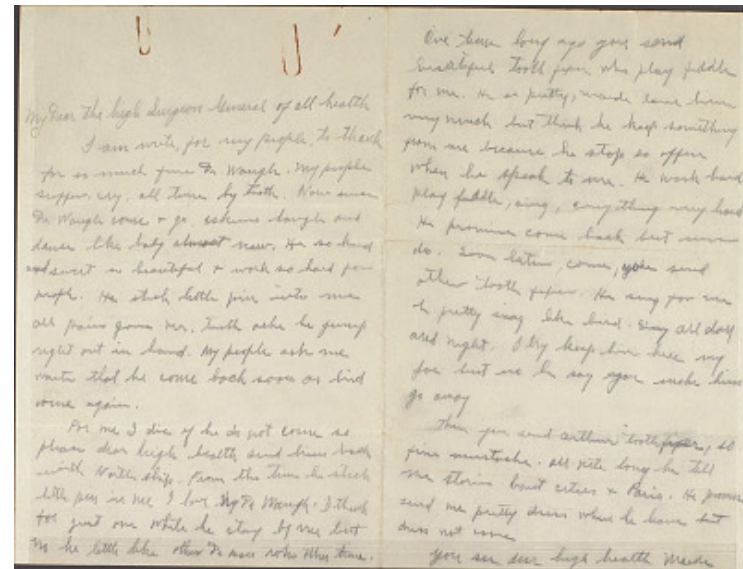 My Dear The high Surgeon General of all health
I am write, for my people, to thank
for so much fine Dr. Waugh. My people
suffer, cry, all time by tooth. Now since
Dr Waugh come + go, eskimo laugh and
dance like baby almost new. He so kind
and sweet so beautiful + work so hard for
people. He stick little pin into me
all pains goes Mr. tooth ache he jump
right out in hand. My people ask me
write that he come back soon as bird
come again.
For me I die if he do not come so
please dear high health send him back
with North ship. From the time he stick
little pin in me I love My Dr Waugh. I think
for just one while he stay by me but
no he little like other Dr man who other time.
One time long ago you send
beautiful tooth fixer who play fiddle
for me. He so pretty, me love him
very much but think he keep something
from me because he stop so often
when he speak to me. He work hard
play fiddle, sing, everything very hard
He promise come back but never
do. Soon later, come, you send
other tooth fixer. He sing for me
so pretty song like bird. Sing all day
and night. I try keep him here my
for but no he say you make him
go away
Then you send arthur tooth fixer, so
fine mustache. all nite long he tell
me stories bout cities + Paris. He promise
send me pretty dress when he leave but
dress not come
You see sir high health